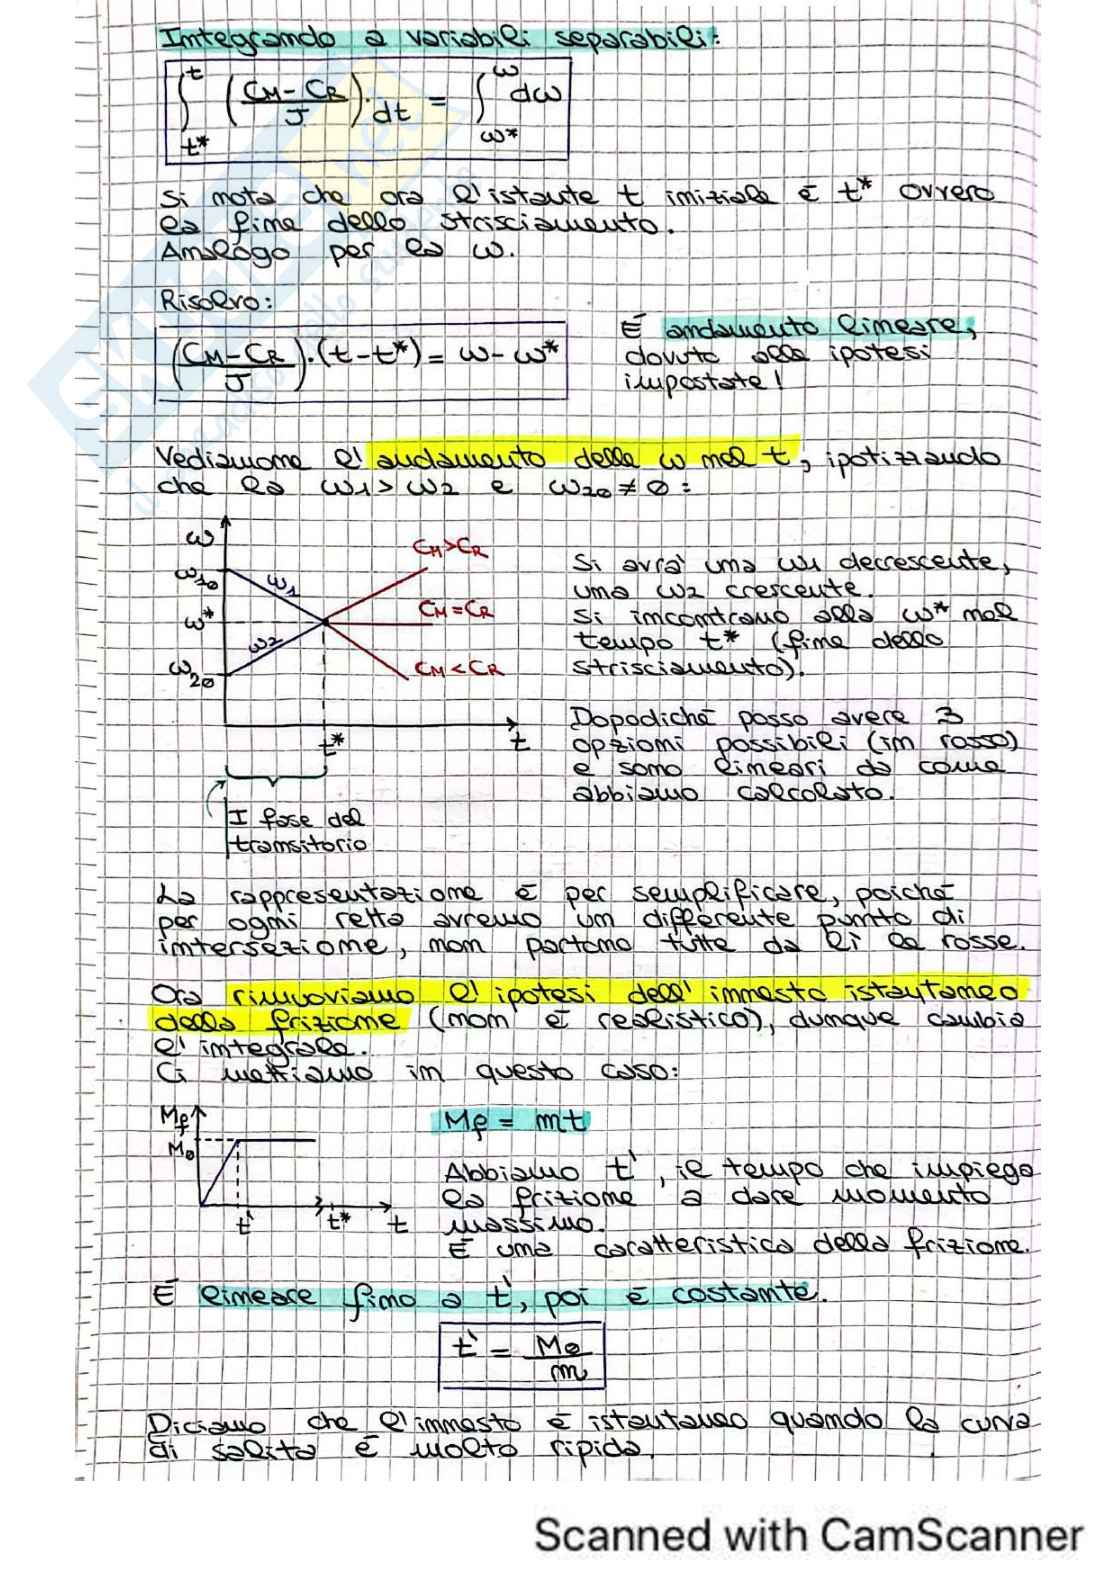 Integrando a variabili separabili:
∫_{t*}^{t} ((C_M - C_R)/J) · dt = ∫_{ω*}^{ω} dω
Si nota che ora l'istante t iniziale è t* ovvero
la fine dello strisciamento.
Analogo per la ω.
Risolvo:
((C_M - C_R)/J) · (t - t*) = ω - ω*
È andamento lineare,
dovuto alle ipotesi
impostate!
Vediamone l'andamento della ω nel t, ipotizzando
che la ω1 > ω2 e ω20 ≠ 0 :
ω
ω10
ω*
ω20
ω1
ω2
C_M>C_R
C_M=C_R
C_M<C_R
t*
t
I fase del
transitorio
Si avrà una ω1 decrescente,
una ω2 crescente.
Si incontrano alla ω* nel
tempo t* (fine dello
strisciamento).
Dopodiché posso avere 3
opzioni possibili (in rosso)
e sono lineari da come
abbiamo calcolato.
La rappresentazione è per semplificare, poiché
per ogni retta avremo un differente punto di
intersezione, non partono tutte da lì le rosse.
Ora rimuoviamo l'ipotesi dell'innesto istantaneo
della frizione (non è realistico), dunque cambia
l'integrale.
Ci mettiamo in questo caso:
Mf
M0
t'
t*
t
Mf = mt
Abbiamo t', il tempo che impiega
la frizione a dare momento
massimo.
È una caratteristica della frizione.
È lineare fino a t', poi è costante.
t' = M0/m
Diciamo che l'innesto è istantaneo quando la curva
di salita è molto ripida.
Scanned with CamScanner